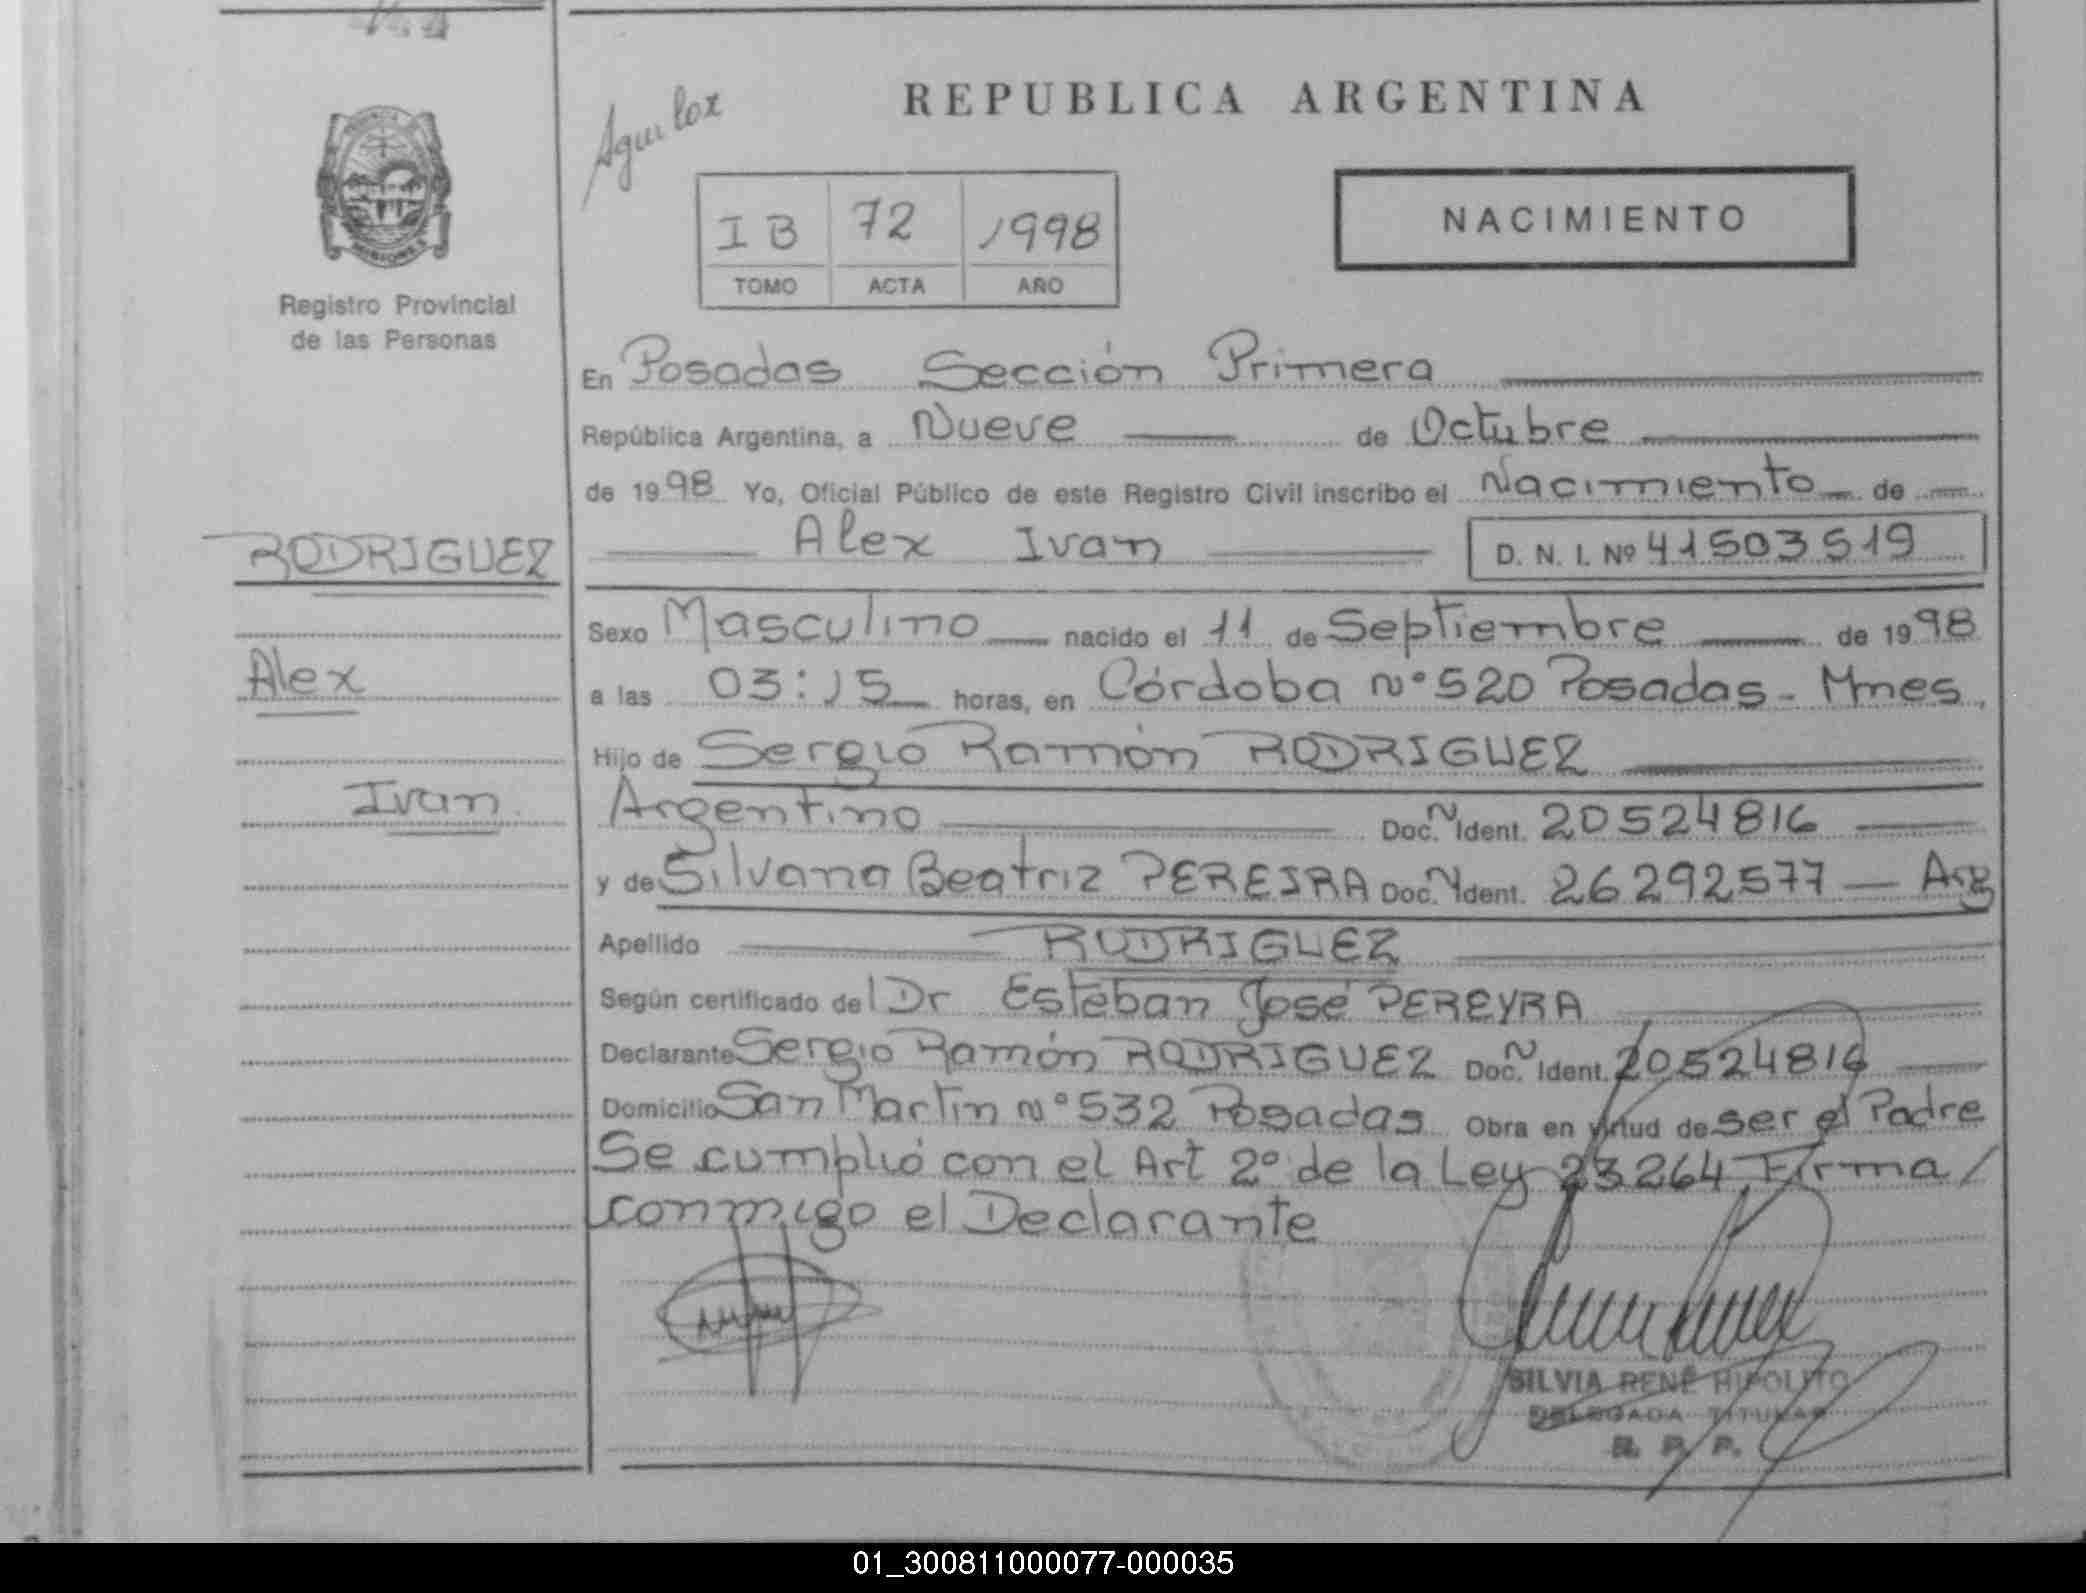 REPUBLICA ARGENTINA
IB 72 1998
TOMO ACTA AÑO
NACIMIENTO
Registro Provincial
de las Personas
En Posadas Sección Primera
República Argentina, a Nueve de Octubre
de 1998 Yo, Oficial Público de este Registro Civil inscribo el Nacimiento de
Alex Ivan D. N. I. Nº 41503519
RODRIGUEZ
Alex
Ivan.
Sexo Masculino nacido el 11 de Septiembre de 1998
a las 03:15 horas, en Córdoba nº 520 Posadas - Mnes,
Hijo de Sergio Ramón RODRIGUEZ
Argentino Doc. N Ident. 20524816
y de Silvana Beatriz PEREIRA Doc. N Ident. 26292577 — Arg
Apellido RODRIGUEZ
Según certificado del Dr Esteban José PEREYRA
Declarante Sergio Ramón RODRIGUEZ Doc. N Ident. 20524816
Domicilio San Martin nº 532 Posadas Obra en virtud de ser el Padre
Se cumplió con el Art 2º de la Ley 23264 Firma/
conmigo el Declarante
SILVIA RENÉ HIPOLITO
DELEGADA TITULAR
R. P. P.
01_300811000077-000035